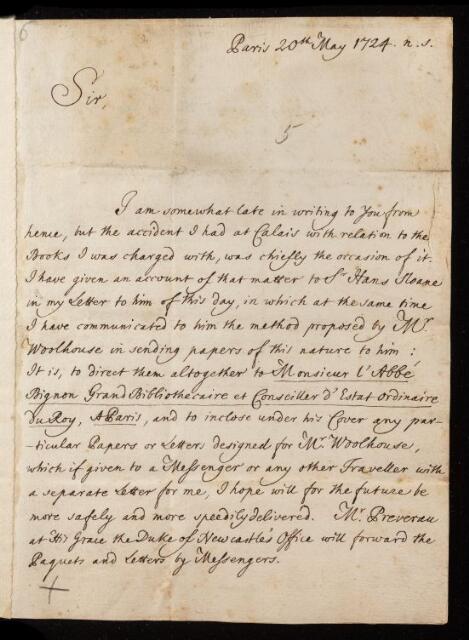 6
Paris 20th May 1724. n.s.
Sir,
5
I am somewhat late in writing to You from
hence, but the accident I had at Calais with relation to the
Books I was charged with, was chiefly the occasion of it.
I have given an account of that matter to Sr Hans Sloane
in my Letter to him of this day, in which at the same time
I have communicated to him the method proposed by Mr.
Woolhouse in sending papers of this nature to him :
It is, to direct them altogether to Monsieur l'Abbé
Bignon Grand Bibliothecaire et Conseiller d'Estat ordinaire
du Roy, A Paris, and to inclose under his Cover any par-
-ticular Papers or Letters designed for Mr. Woolhouse,
which if given to a Messenger or any other Traveller with
a separate Letter for me, I hope will for the future be
more safely and more speedily delivered. Mr. Preverau
at His Grace the Duke of Newcastle's Office will forward the
Paquets and Letters by Messengers.
+